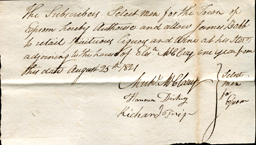 The Subscribers Select men for the Town of
Epsom hereby Authorise and allow James Babb
to retail Spirituous liquors and Wine at his Store
adjoining to the house of McClary one year from
this date August 25th 1821
McClary Select
men
Richard for
Epsom